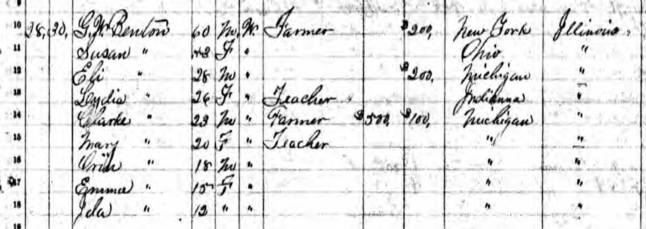 10 28, 30, G. W. Benton 60 M. W. Farmer $200, New York Illinois,
11 Susan " 43 F " Ohio "
12 Eli " 28 M " $200, Michigan "
13 Lydia " 26 F " Teacher Indianna "
14 Clarke " 23 M " Farmer $500, $100, Michigan "
15 Mary " 20 F " Teacher " "
16 Orin " 18 M " " "
17 Emma " 15 F " " "
18 Ida " 12 " " " "